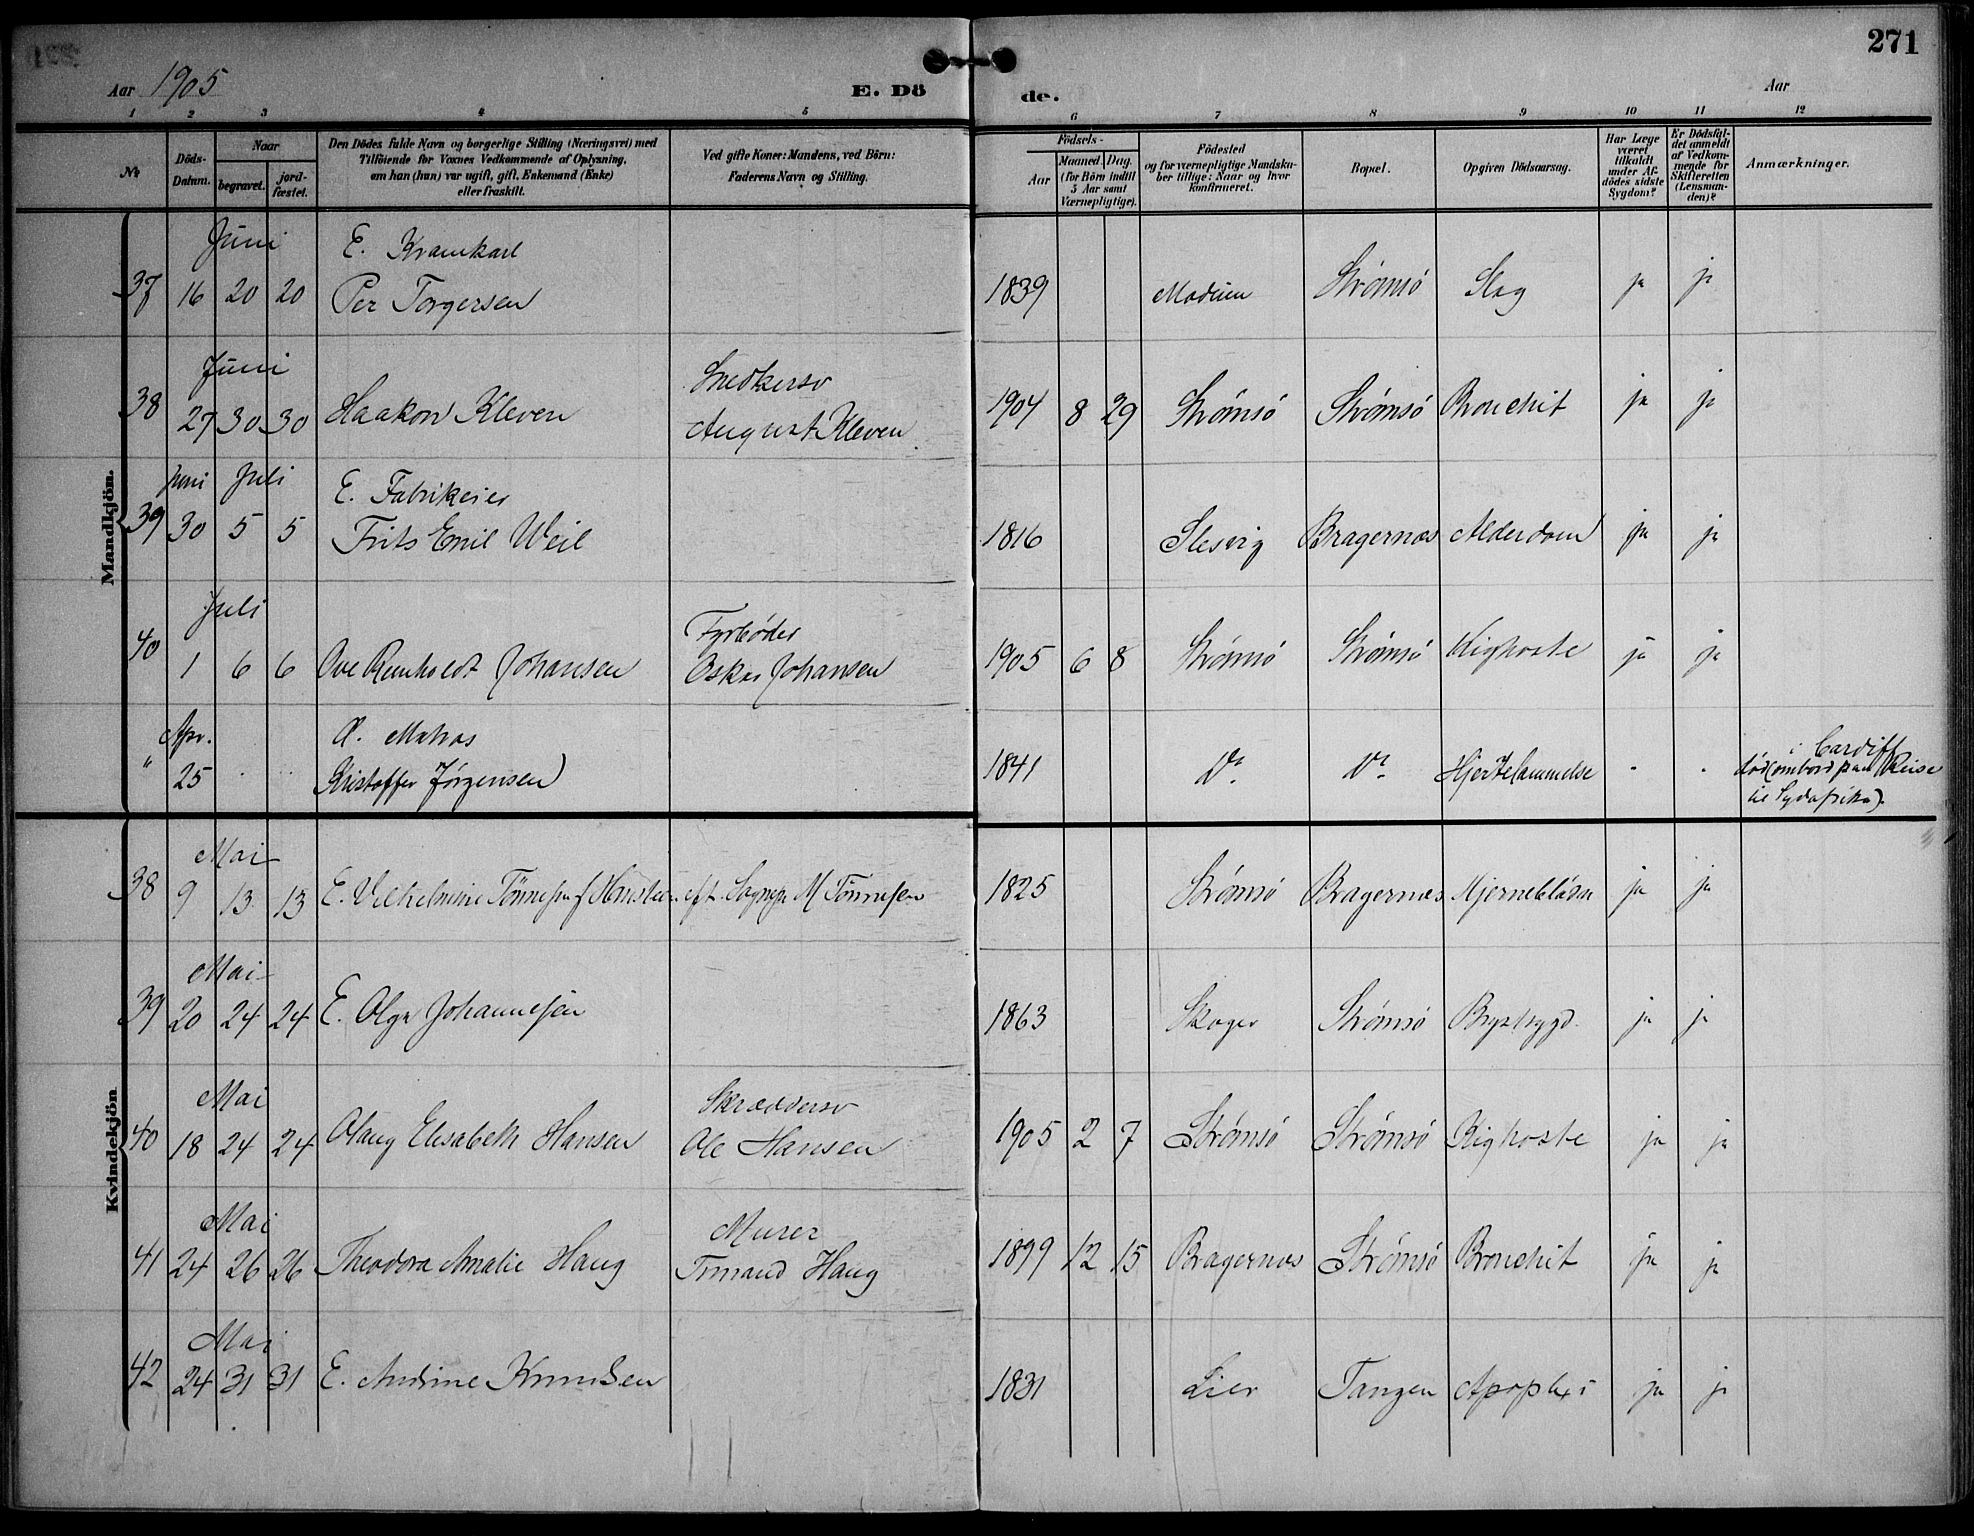 271
Aar 1905 E. Dö de. Aar
1 2 3 4 5 6 7 8 9 10 11 12
№
Döds-Datum.
Naar
begravet.
jord-fæstet.
Den Dödes fulde Navn og borgerlige Stilling (Næringsvei) med
Tilföiende for Voxnes Vedkommende af Oplysning,
om han (hun) var ugift, gift, Enkemand (Enke)
eller fraskilt.
Ved gifte Koner: Mandens, ved Börn:
Faderens Navn og Stilling.
Födsels-
Aar
Maaned. Dag.
(for Börn indtil
5 Aar samt
Værnepligtige).
Födested
og for værnepligtige Mandskaber tillige: Naar og hvor
konfirmeret.
Bopæl.
Opgiven Dödsaarsag.
Har Læge
været
tilkaldt
under Afdödes sidste
Sygdom?
Er Dödsfaldet anmeldt
af Vedkommende for
Skifteretten
(Lensmanden)?
Anmærkninger.
Mandkjön.
Juni E. Kramkarl
37 16 20 20 Per Torgersen 1839 Modum Strømsö Slag ja ja
Juni Snedkersv
38 27 30 30 Haakon Kleven August Kleven 1904 8 29 Strømsö Strømsö Bronchit ja ja
Juni Juli E. Fabrikeier
39 30 5 5 Frits Emil Weil 1816 Slesvig Bragernæs Alderdom ja ja
Juli Fyrbøder
40 1 6 6 Ove Reinholdt Johansen Oskar Johansen 1905 6 8 Strømsö Strømsö Kighoste ja ja
Apr. Matros
" 25 Kristoffer Jörgensen 1841 Do Do Hjertelammelse
i Cardiff
död (ombord paa Reise
til Sydafrika).
Kvindekjön
Mai
38 9 13 13 E. Vilhelmine Tönnesen f. eft. Sognepr M Tönnesen 1825 Strømsö Bragernæs ja ja
Mai
39 20 24 24 E. Olga Johannesen 1863 Skoger Strømsö Brystsygd. ja ja
Mai Skræddersv
40 18 24 24 Olaug Elisabeth Hansen Ole Hansen 1905 2 7 Strømsö Strømsö Kighoste ja ja
Mai Murer
41 24 26 26 Theodora Amalie Haug Haug 1899 12 15 Bragernæs Strømsö Bronchit ja ja
Mai
42 24 31 31 E. Andrine Knudsen 1831 Lier Tangen Apoplexi ja ja